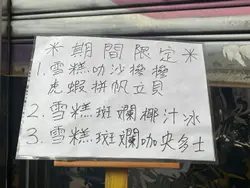 米期間限定米
1. 雪糕叻沙摻摻
虎蝦拼帆立貝
2. 雪糕斑斕椰汁冰
3. 雪糕斑斕咖央多士